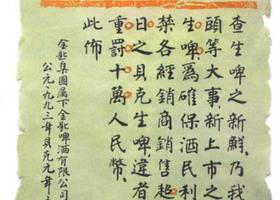 查生啤之新鲜乃我
頭等大事新上市之
生啤為確保酒民利
禁各經銷商銷售超
日之貝克生啤違者
重罰十萬人民幣
此佈
金匙集團属下金匙啤酒有限公司
公元一九九三年貝克元年